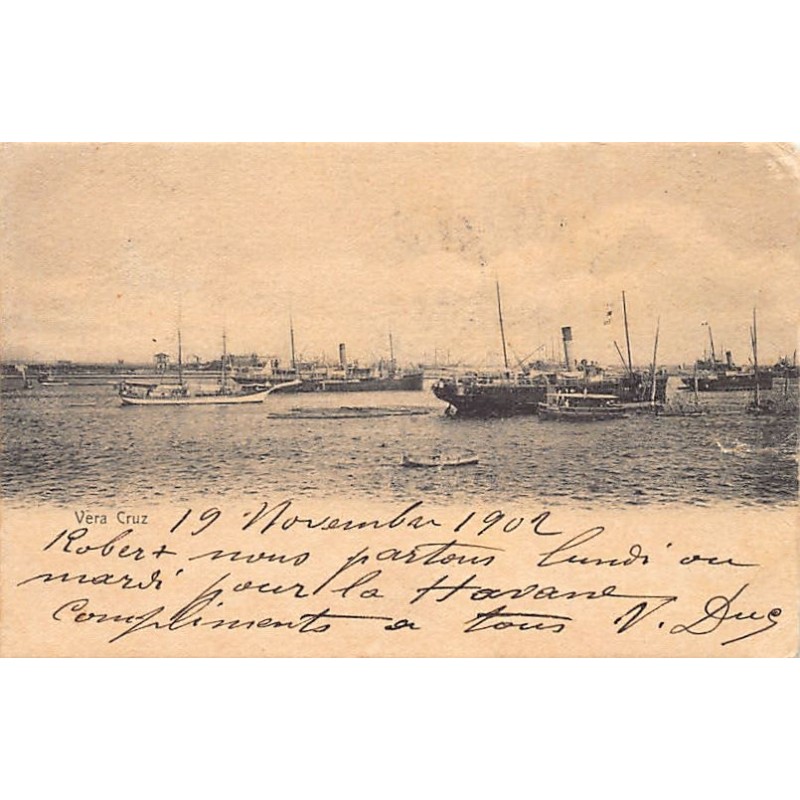 Vera Cruz 19 Novembre 1902
Robert nous partons lundi ou
mardi pour la Havane
Compliments a tous V. Duc